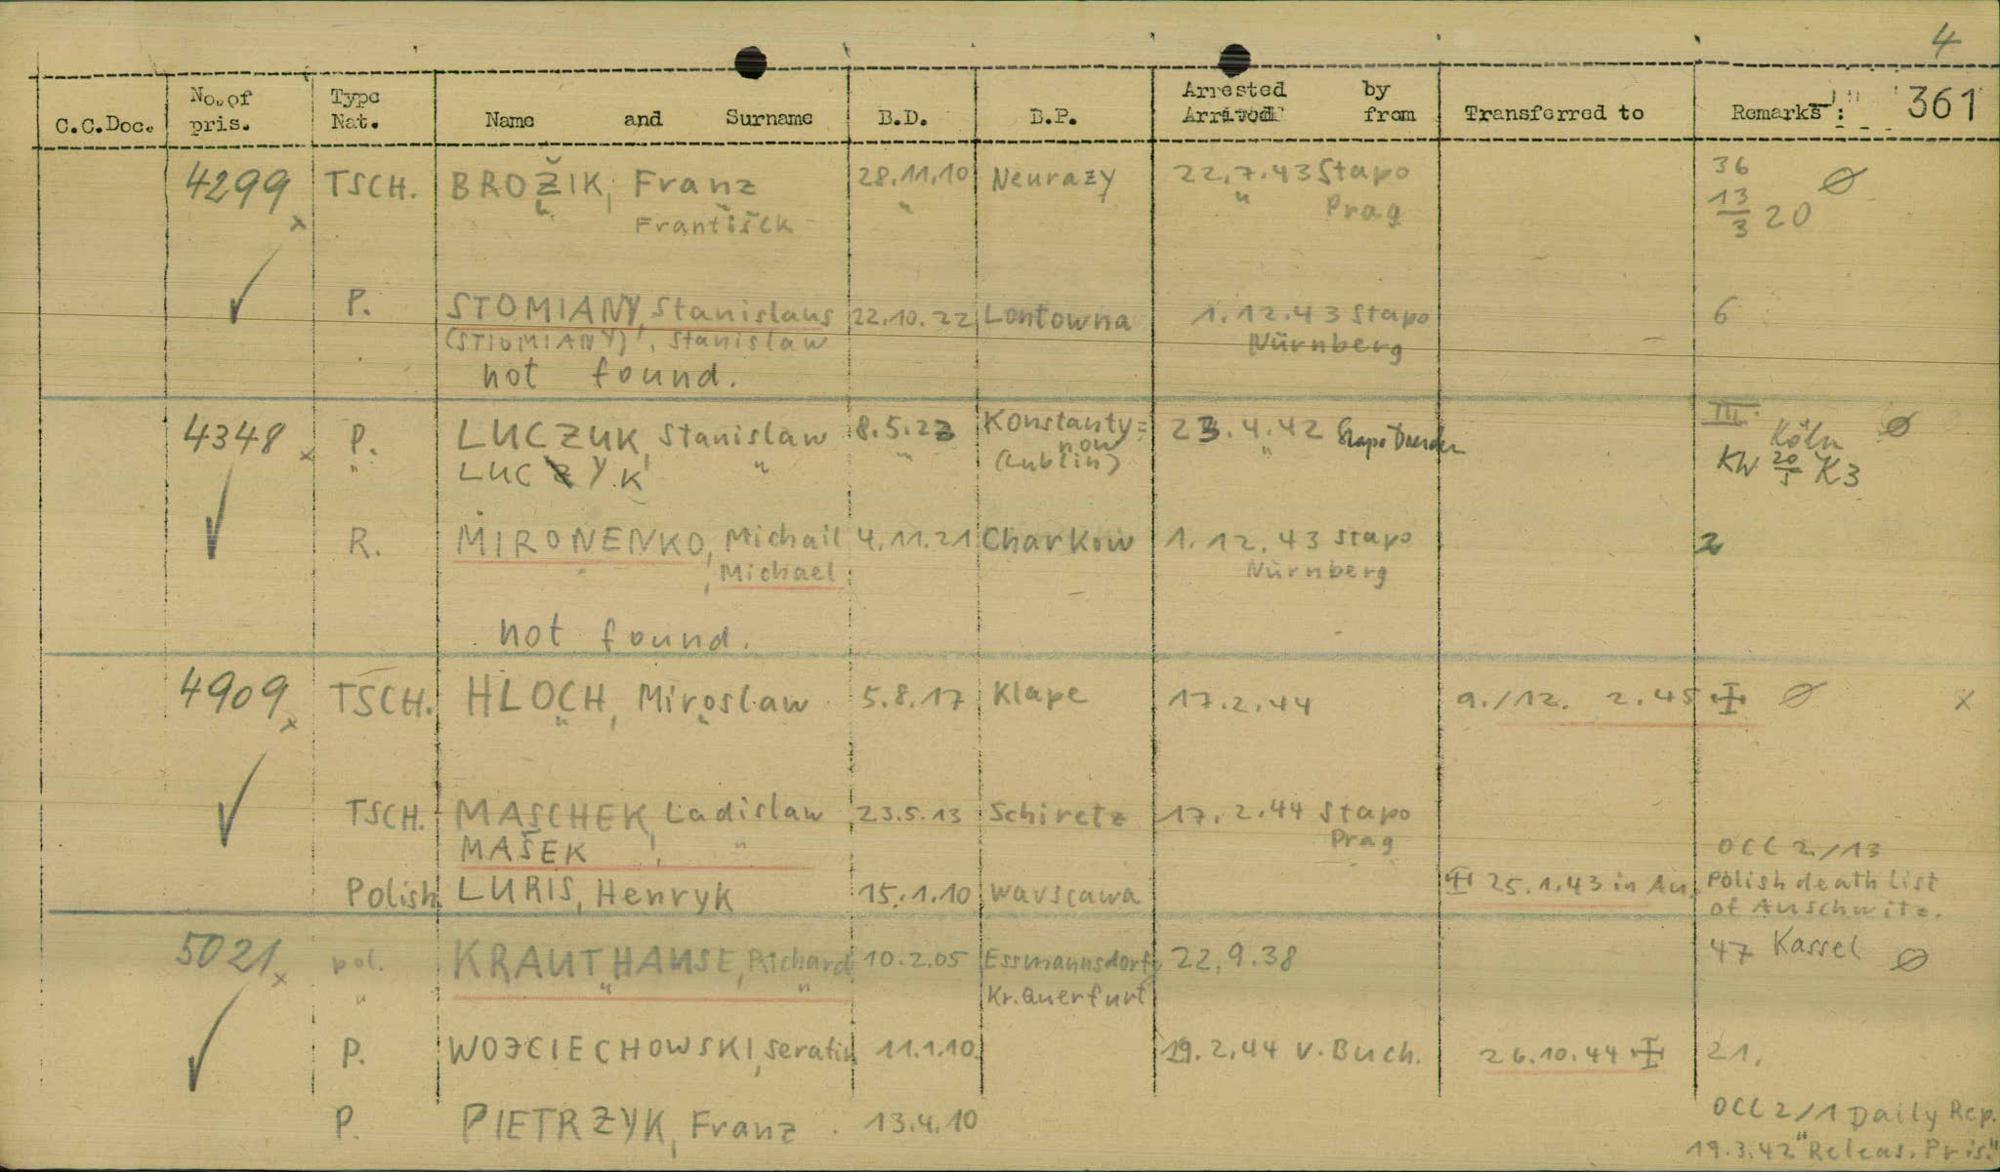 4
C.C.Doc. No. of pris. Type Nat. Name and Surname B.D. B.P. Arrested by Transferred to Remarks : 361
Arrived from
4299 x TSCH. BROŽIK, Franz 28.11.10 Neurazy 22.7.43 Stapo 36 Ø
" František " " Prag 13/3 20
P. STOMIANY, Stanislaus 22.10.22 Lontowna 1.12.43 Stapo 6
(STIOMIANY), Stanislaw Nürnberg
not found.
4348 x P. LUCZUK, Stanislaw 8.5.22 Konstanty= 23.4.42 Stapo Dresden III. Köln Ø
" LUCZYK " " now " KW 20/5 K3
(Lublin)
R. MIRONENKO, Michail 4.11.21 Charkow 1.12.43 Stapo 2
, Michael Nürnberg
not found.
4909 x TSCH. HLOCH, Miroslaw 5.8.17 Klape 17.2.44 9./12. 2.45 Ø x
" "
TSCH. MASCHEK, Ladislaw 23.5.13 Schiretz 17.2.44 Stapo
MAŠEK , " Prag OCC 2/13
Polish LURIS, Henryk 15.1.10 Warscawa 25.1.43 in Au. Polish death list
of Auschwitz.
5021 x pol. KRAUTHAUSE, Richard 10.2.05 Essmannsdorf, 22.9.38 47 Kassel Ø
" " " Kr. Querfurt
P. WOJCIECHOWSKI, Serafin 11.1.10. 29.2.44 v. Buch. 26.10.44 21.
P. PIETRZYK, Franz 13.4.10 OCC 2/1 Daily Rep.
19.3.42 "Releas. Pris."